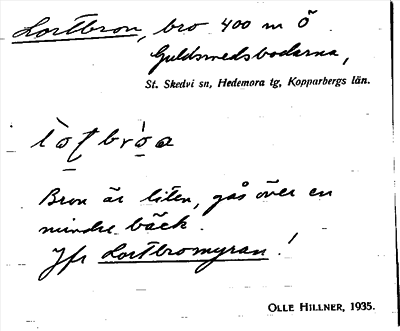 Lortbron, bro 400 m Ö
Guldsmedsbodarna,
St. Skedvi sn, Hedemora tg, Kopparbergs län.
Bron är liten, gås över en
mindre bäck.
Jfr Lortbromyran!
OLLE HILLNER, 1935.